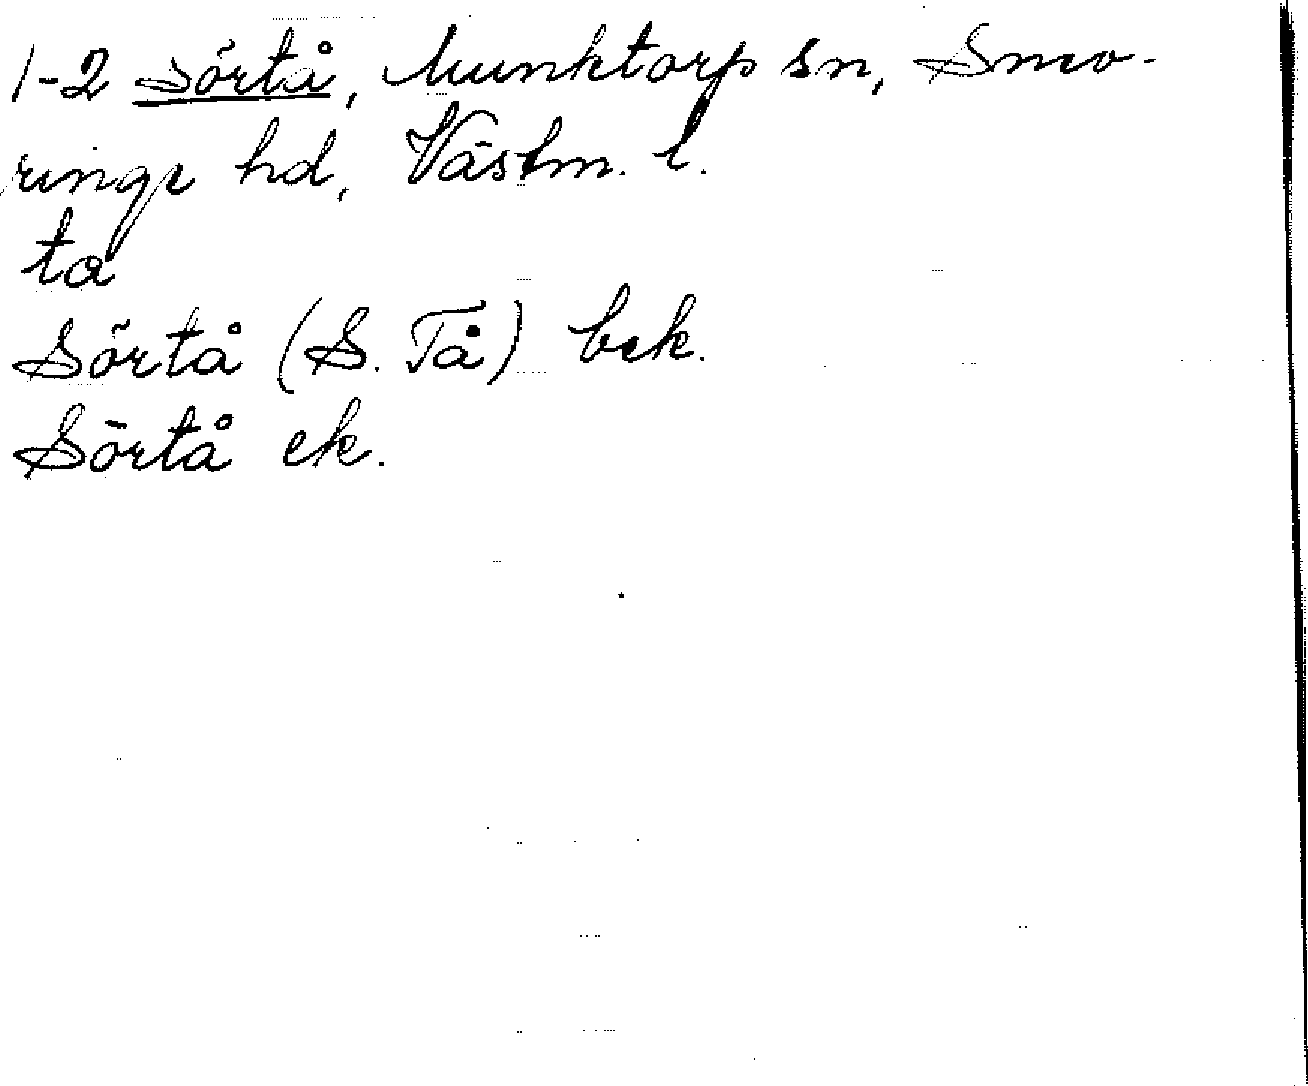 1-2 Sörtå, Munktorp sn, Snev-
ringe hd, Västm. l.
ta
Sörtå (S. Tå) bek.
Sörtå ek.